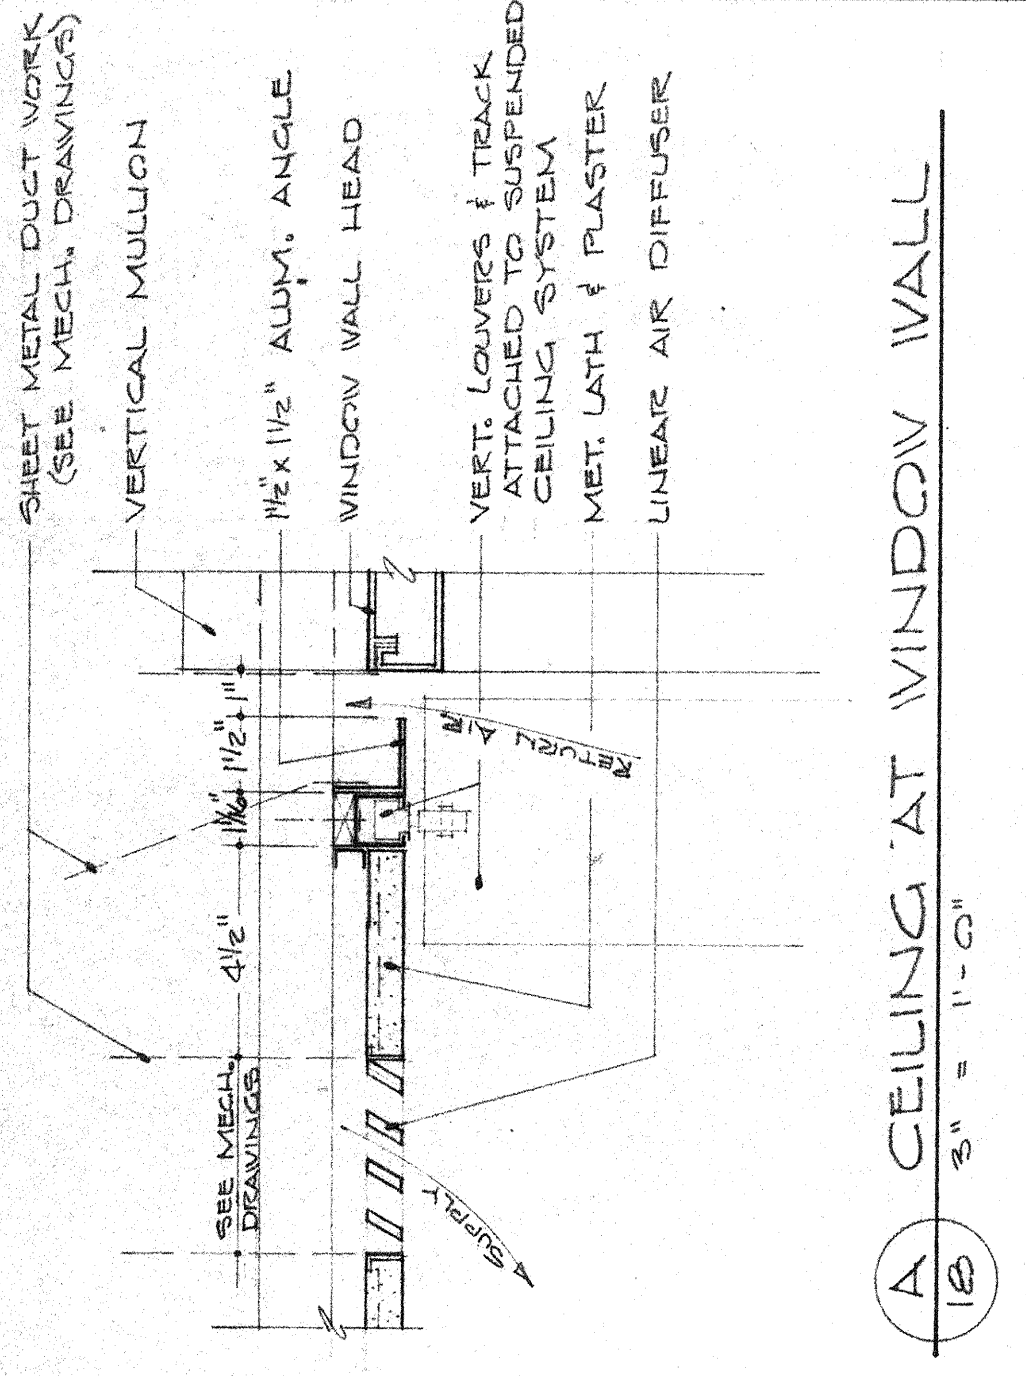 SHEET METAL DUCT WORK
(SEE MECH. DRAWINGS)
VERTICAL MULLION
1 1/2" x 1 1/2" ALUM. ANGLE
WINDOW WALL HEAD
VERT. LOUVERS & TRACK
ATTACHED TO SUSPENDED
CEILING SYSTEM
MET. LATH & PLASTER
LINEAR AIR DIFFUSER
SEE MECH.
DRAWINGS
4 1/2"
1 1/2"
1"
RETURN AIR
SUPPLY
A
18
CEILING AT WINDOW WALL
3" = 1'-0"